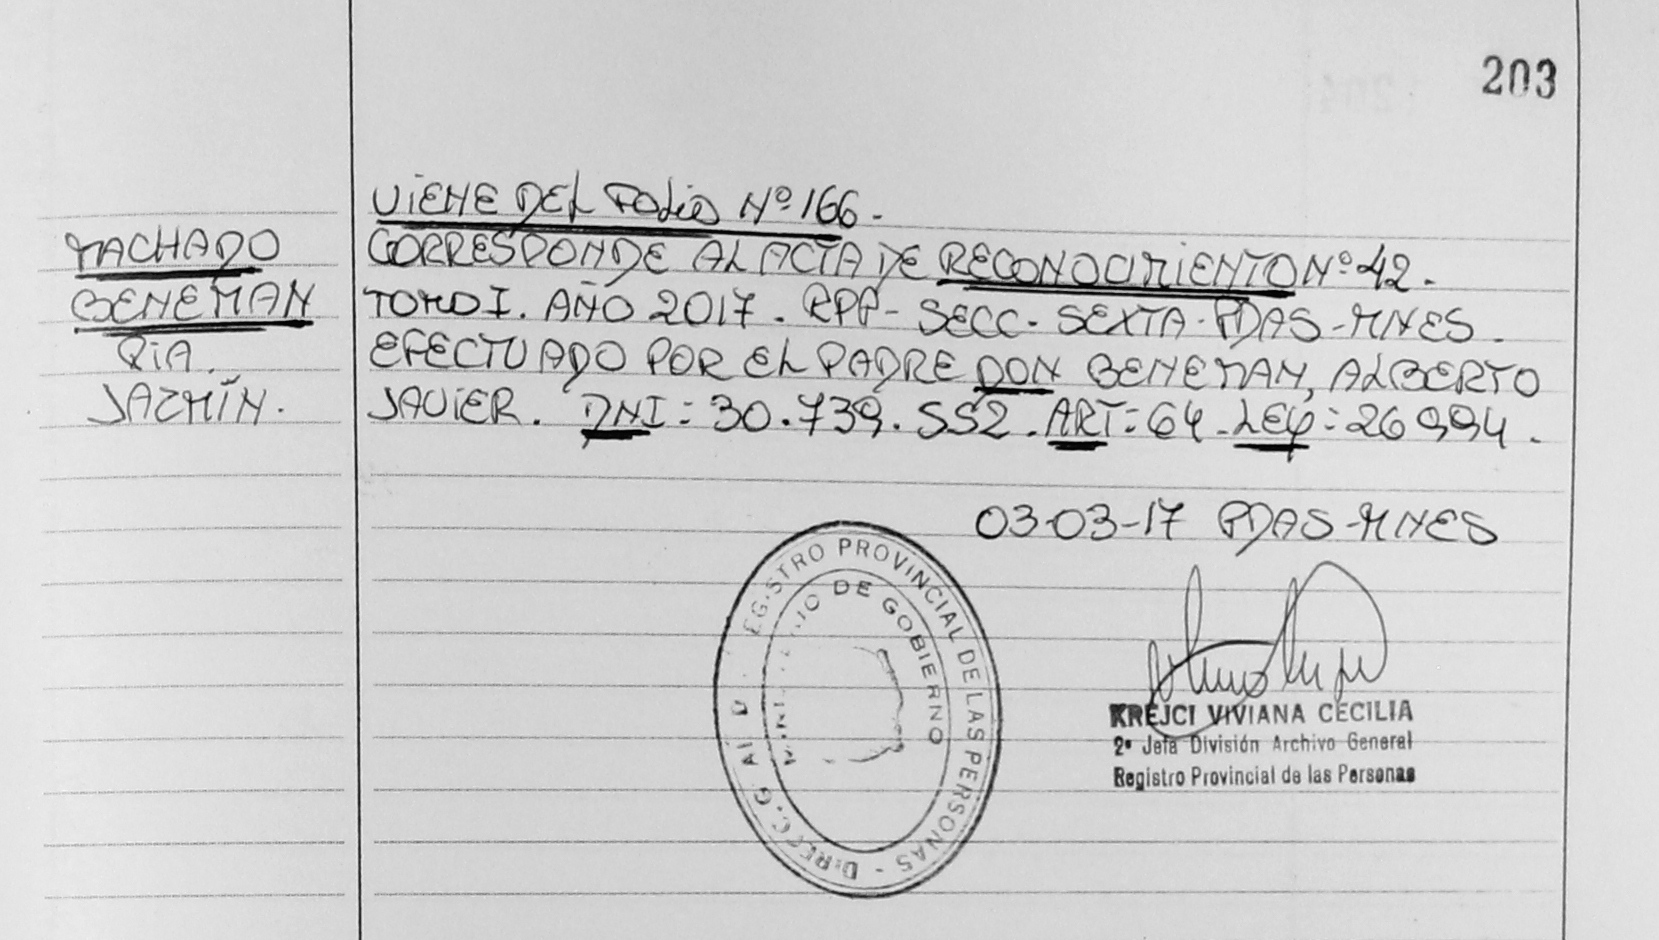 203
VIENE DEL FOLIO Nº 166.-
MACHADO
BENEMAN
PIA.
JAZMÍN.
CORRESPONDE AL ACTA DE RECONOCIMIENTO Nº 42.
TOMO I. AÑO 2017. RPP- SECC- SEXTA- PDAS-MNES.
EFECTUADO POR EL PADRE DON BENEMAN, ALBERTO
JAVIER. DNI: 30.739.552. ART: 64. LEY: 26994.
03-03-17 PDAS-MNES
REGISTRO PROVINCIAL DE LAS PERSONAS
DE GOBIERNO
KREJCI VIVIANA CECILIA
2ª Jefa División Archivo General
Registro Provincial de las Personas